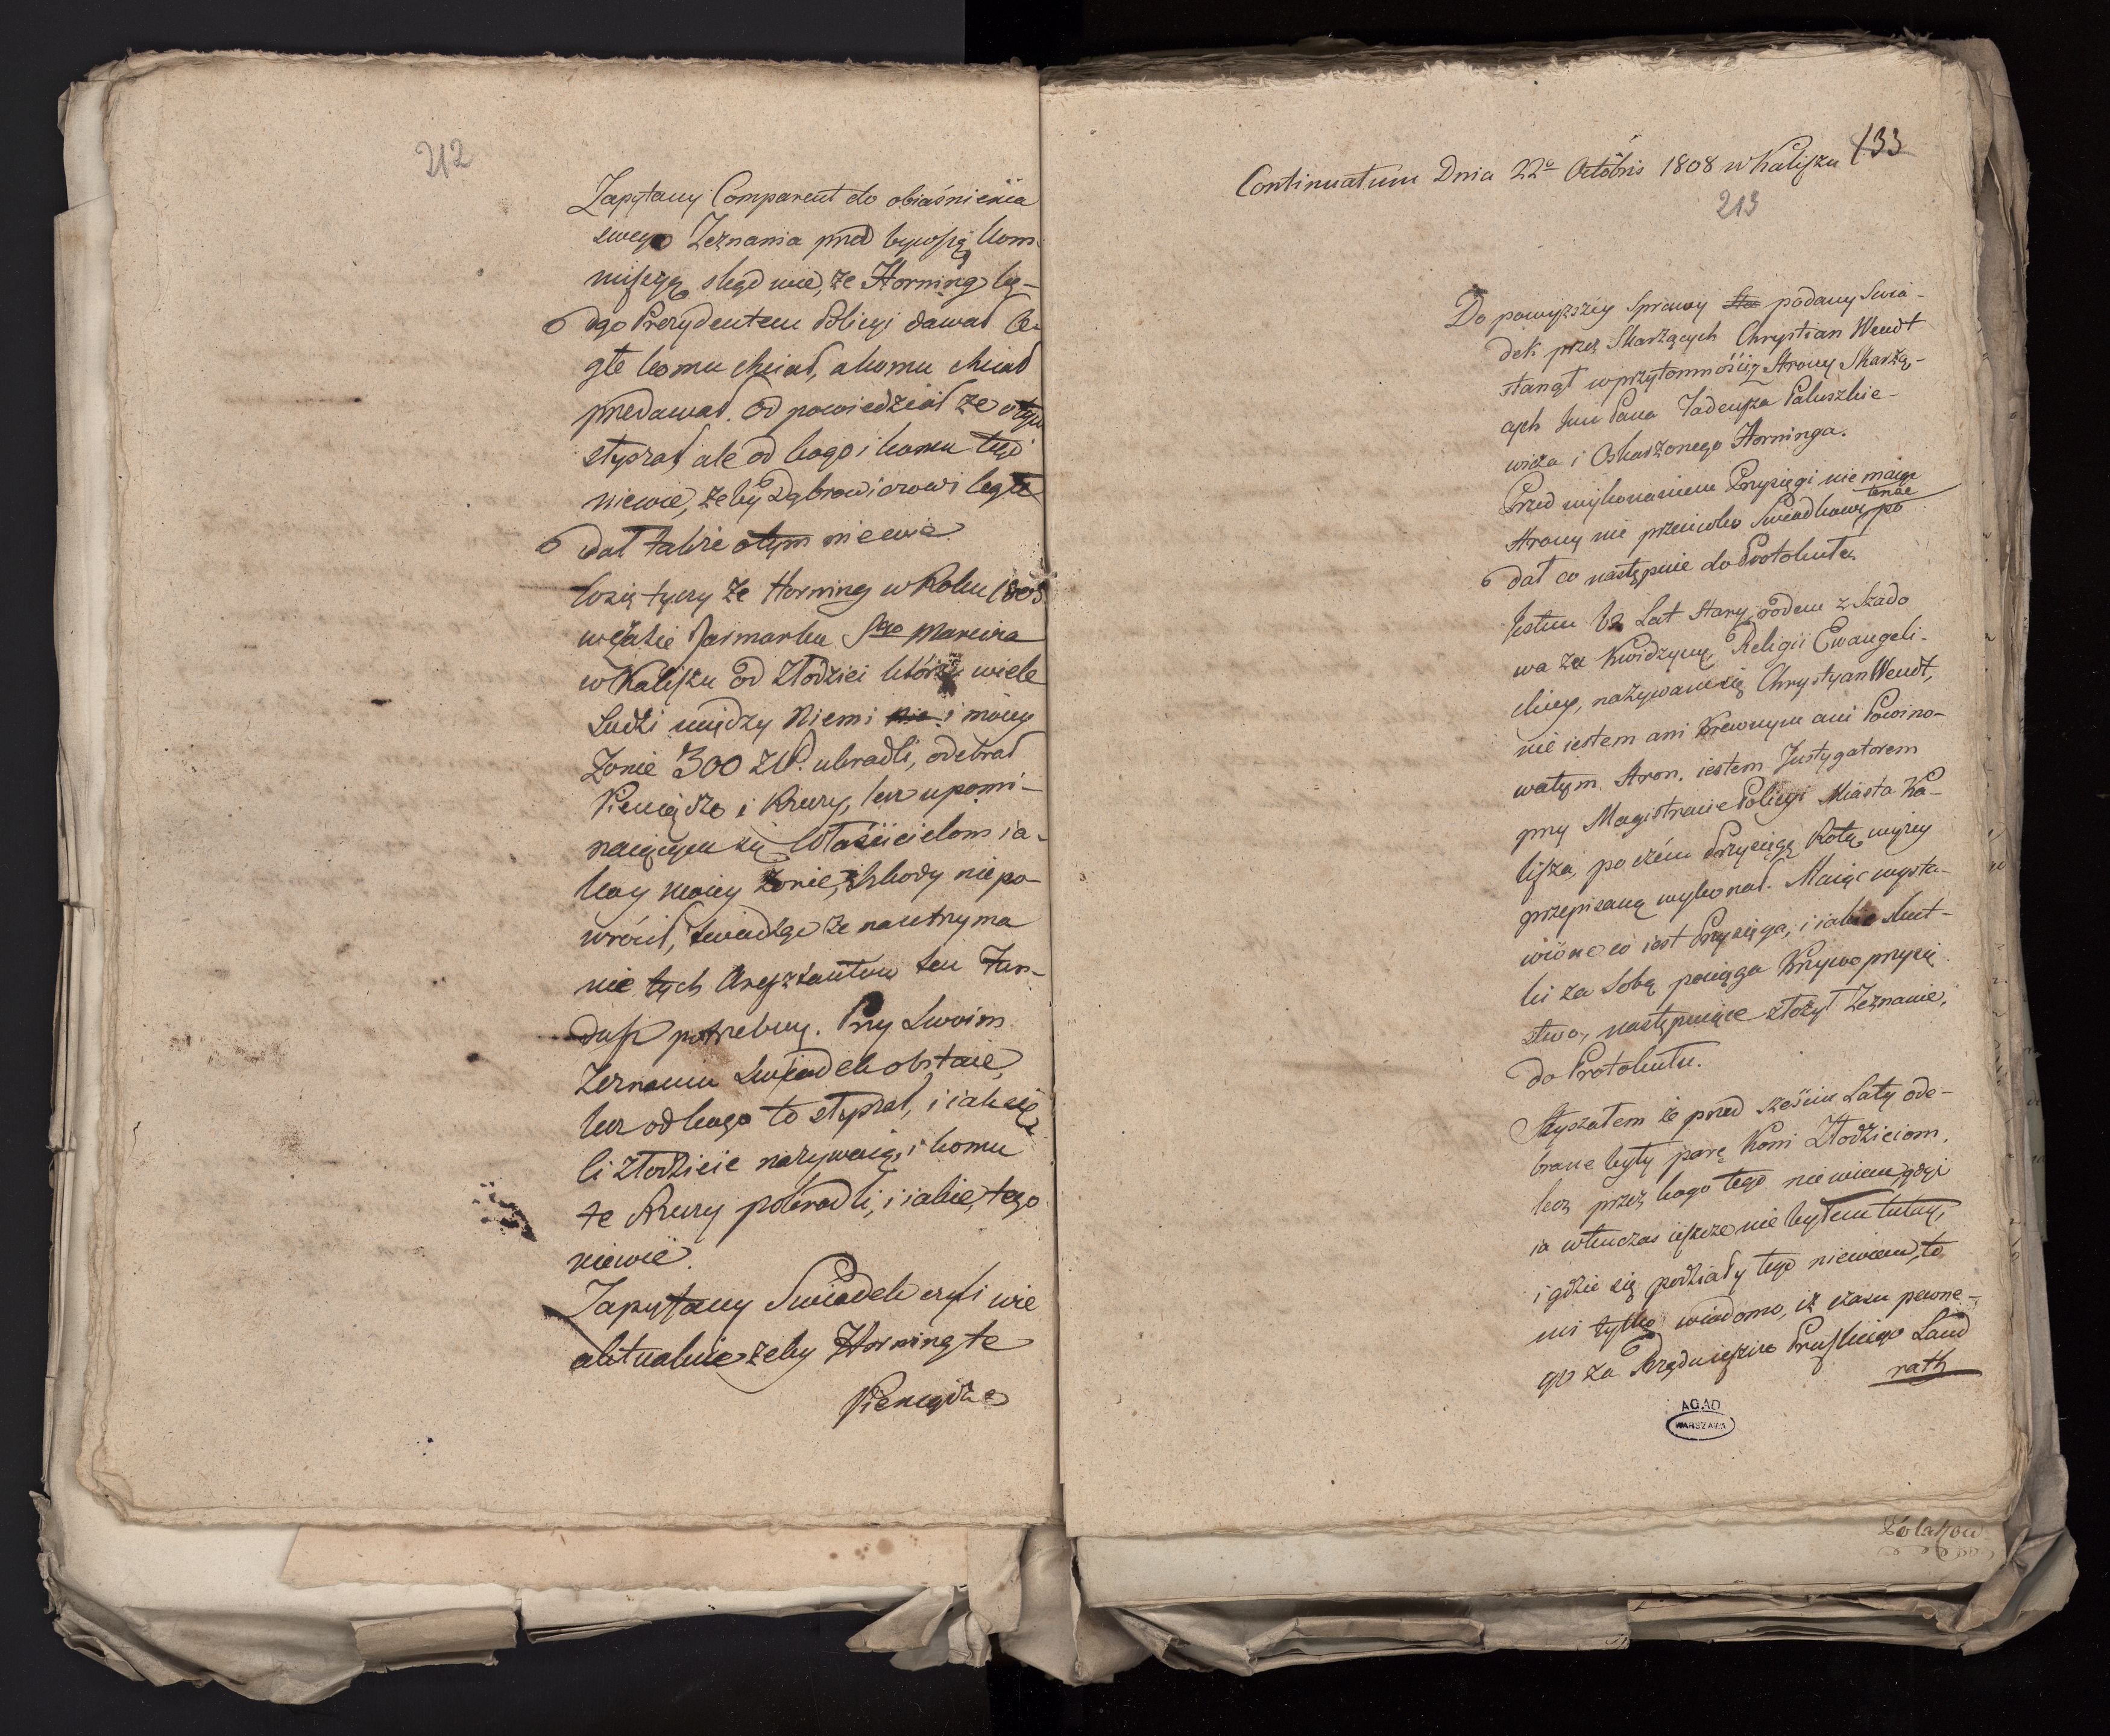 212
Zapytany Comparent do obiaśnienia
swego Zeznania pred bywszą Kom-
misyą skąd wie, że Horning bę-
dąc Prezydentem Policyi dawał Ce-
głe komu chciał, a komu chciał
predawał. Odpowiedział że o tym
słyszał ale od kogo i komu tego
niewie, żeby Dąbrowiczowi Cegłę
dał także o tym niewie.
Co się tyczy że Horning w Roku 1805
w czasie Jarmarku Sgo Marcina
w Kaliszu od Złodziei którzy wiele
Ludzi między niemi nie i moiey
Żonie 300 ZłP. ukradli, odebrał
Pieniądze i Rzeczy, lecz upomi-
naiącym się Właścicielom ia-
koy moiey Żonie, szkody niepo-
wrócił, twierdząc że na utrzyma
nie tych Aresztantów ten Fun-
dusz potrzebny. Pry Swoim
Zeznaniu Swiadek obstaie,
lecz od kogo to słyszał, i iak się
ci Złodzieie nazywaią, i komu
te Rzeczy pokradli, i iakie, tego
niewie.
Zapytany Swiadek czyli wie
aktualnie żeby Horning te
Pieniądze
133
Continuatum Dnia 22o Octobris 1808 w Kaliszu
213
Do powyższey Sprawy Sta podany Swia-
dek przez Skarżących Chrystian Wendt
stanął w przytomności Strony Skarżą-
cych Jmć Pana Tadeusza Paluszkie-
wicza i Oskarżonego Horninga.
Przed wykonaniem Przysięgi nie maiąc
Strony nic przeciwko Swiadkowi po
tenże
dał co następuie do Protokułu
Jestem 62 Lat Stary, rodem z Szado
wa za Kwidzyną, Religii Ewangeli-
ckiey, nazywam się Chrystyan Wendt,
nie iestem ani Krewnym ani Powino-
watym Stron. iestem Justygatorem
przy Magistracie Policyi Miasta Ka-
lisza, po czém Przysięgę Rotą wyżey
przepisaną wykonał. Maiąc wysta-
wione co iest Przysięga, i iakie skut-
ki za Sobą pociąga Krzywoprzysię
stwo, następuiące złożył Zeznanie,
do Protokułu.
Słyszałem że pred sześciu Laty ode-
brane były parę Koni Złodzieiom,
lecz przez kogo tego niewiem gdyż
ia wtenczas ieszcze nie byłem tutay,
i gdzie się podziały tego niewiem, to
mi tylko wiadomo, iż czasu pewne-
go za Rządu ieszcze Pruskiego Land
rath
AGAD
WARSZAWA